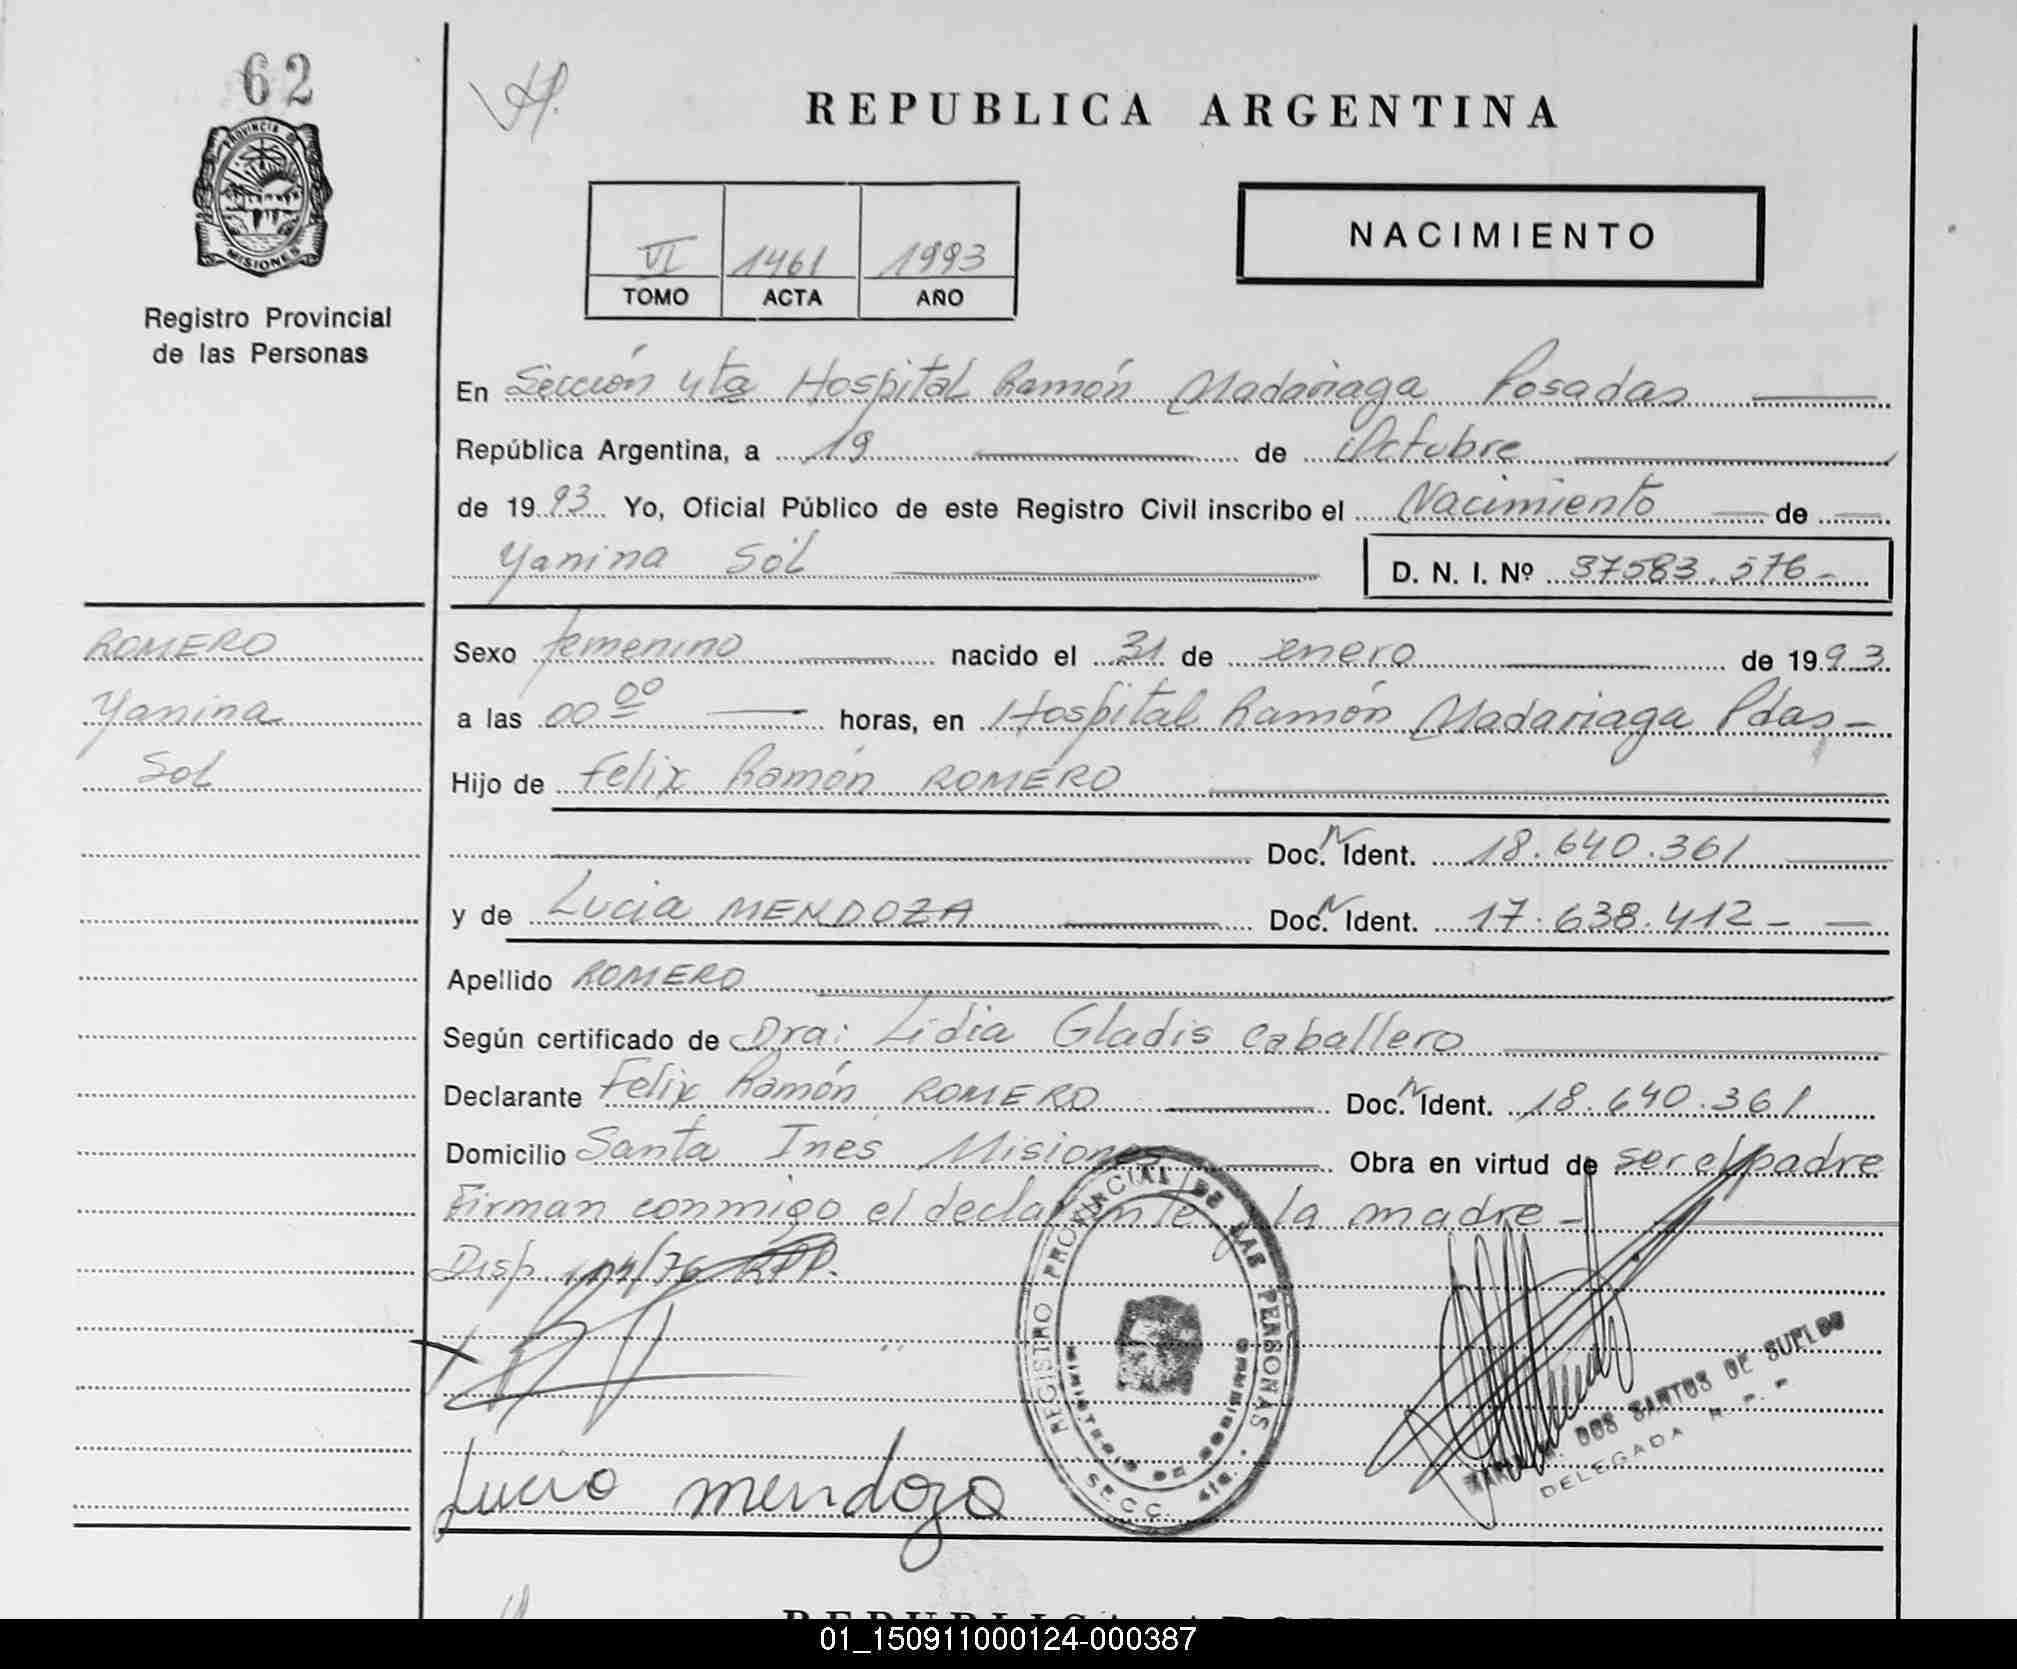 62
PROVINCIA DE
MISIONES
Registro Provincial
de las Personas
REPUBLICA ARGENTINA
VI 1461 1993
TOMO ACTA AÑO
NACIMIENTO
En Sección 4ta Hospital Ramón Madariaga Posadas
República Argentina, a 19 de Octubre
de 1993 Yo, Oficial Público de este Registro Civil inscribo el Nacimiento de
Yanina Sol D. N. I. Nº 37583.576-
ROMERO
Yanina
Sol
Sexo femenino nacido el 31 de enero de 1993
a las 00 00 horas, en Hospital Ramón Madariaga Pdas-
Hijo de Felix Ramón ROMERO
Doc. N Ident. 18.640.361
y de Lucia MENDOZA Doc. N Ident. 17.638.412-
Apellido ROMERO
Según certificado de Dra: Lidia Gladis Caballero
Declarante Felix Ramón ROMERO Doc. N Ident. 18.640.361
Domicilio Santa Inés Misiones Obra en virtud de ser el padre
Firman conmigo el declarante y la madre-
Disp.
REGISTRO PROVINCIAL DE LAS PERSONAS
MINISTERIO DE GOBIERNO
SECC. 4ta.
Lucia mendoza
DOS SANTOS DE SUELDO
DELEGADA R. P. P.
REPUBLICA ARGENTINA
01_150911000124-000387